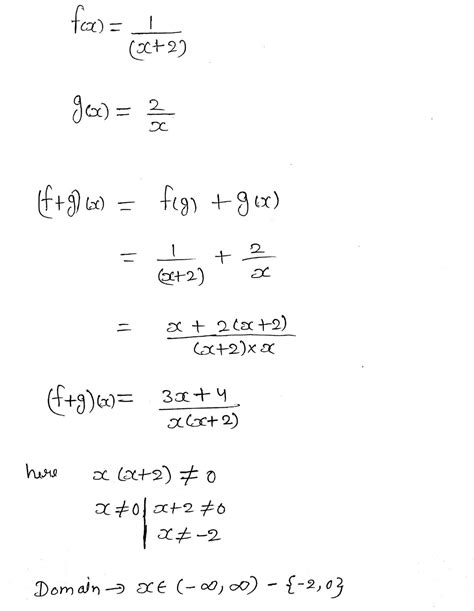 f(x) = 1/(x+2)
g(x) = 2/x
(f+g)(x) = f(g) + g(x)
= 1/(x+2) + 2/x
= x + 2(x+2)/(x+2)×x
(f+g)(x) = 3x+4/x(x+2)
here x(x+2) ≠ 0
x≠0 | x+2 ≠ 0
x ≠ -2
Domain → x ∈ (-∞, ∞) - {-2, 0}